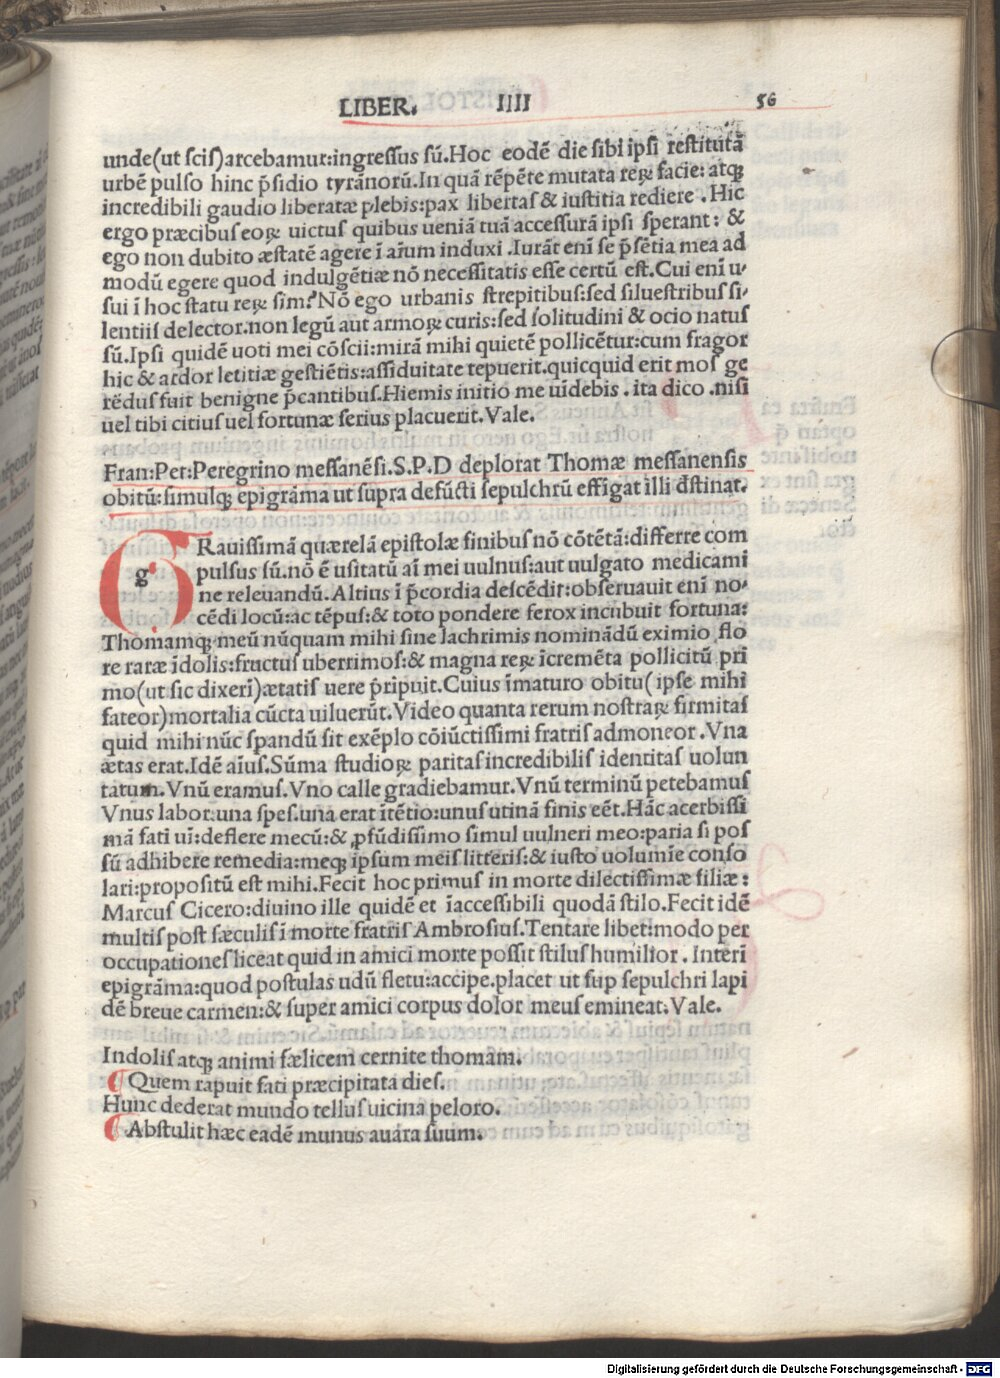 LIBER. IIII 56
unde(ut ſcis)arcebamur:ingreſſus ſū.Hoc eodē die ſibi ipſi reſtitutā
urbē pulſo hinc p̄ſidio tyrānorū.In quā rēpēte mutata reꝝ facie: atqꝫ
incredibili gaudio liberatæ plebis:pax libertas & iuſtitia rediere . Hic
ergo præcibus eoꝝ uictus quibus ueniā tuā acceſſurā ipſi ſperant: &
ego non dubito æſtatē agere ī aruum induxi .Iurāt enī ſe p̄ſētia mea ad
modū egere quod indulgētiæ nō neceſſitatis eſſe certū eſt.Cui enī u-
ſui ī hoc ſtatu reꝝ ſim?Nō ego urbanis ſtrepitibus:ſed ſilueſtribus ſi-
lentiis delector.non legū aut armoꝝ curis:ſed ſolitudini & ocio natus
ſū.Ipſi quidē uoti mei cōſcii:mirā mihi quietē pollicētur:cum fragor
hic & ardor letitiæ geſtiētis:aſſiduitate tepuerit.quicquid erit moſ ge
rēdus fuit benigne p̄cantibus.Hiemis initio me uīdebis . ita dico .niſi
uel tibi citius uel fortunæ ſerius placuerit.Vale.
Fran:Per:Peregrino meſſanēſi.S.P.D deplorat Thomæ meſſanenſis
obitū:ſimulqꝫ epigrāma ut ſupra defūcti ſepulchrū effigat illi dſtinat.
G g Rauiſſimā quærelā epiſtolæ finibus nō cōtētā:differre com
pulſus ſū.nō ē uſitatū aī mei uulnus:aut uulgato medicami
ne releuandū.Altius ī p̄cordia deſcēdit:obſeruauit enī no-
cēdi locū:ac tēpus:& toto pondere ferox incubuit fortuna:
Thomamqꝫ meū nūquam mihi ſine lachrimis nominādū eximio flo
re raræ īdolis:fructus uberrimos:& magna reꝝ īcremēta pollicitū pri
mo(ut ſic dixerī)ætatis uere p̄ripuit.Cuius īmaturo obitu(ipſe mihi
fateor)mortalia cūcta uiluerūt.Video quanta rerum noſtraꝝ firmitas
quid mihi nūc ſpandū ſit exēplo cōiūctiſſimi fratris admoneor .Vna
ætas erat.Idē aīus.Sūma ſtudioꝝ paritas incredibilis identitas uolun
tatum.Vnū eramus.Vno calle gradiebamur.Vnū terminū petebamus
Vnus labor:una ſpes.una erat ītētio:unus utinā finis eēt.Hāc acerbiſſi
mā fati uī:deflere mecū:& ꝓfūdiſſimo ſimul uulneri meo:paria ſi poſ
ſū adhibere remedia:meqꝫ ipſum meis litteris:& iuſto uolumīe conſo
lari:propoſitū eſt mihi.Fecit hoc primus in morte dilectiſſimæ filiæ:
Marcus Cicero:diuino ille quidē et īacceſſibili quodā ſtilo.Fecit idē
multis poſt ſæculis ī morte fratris Ambroſius.Tentare libet:modo per
occupationes liceat quid in amici morte poſſit ſtilus humilior . Interī
epigrāma:quod poſtulas udū fletu:accipe.placet ut ſup ſepulchri lapi
dē breue carmen:& ſuper amici corpus dolor meus emineat.Vale.
Indolis atqꝫ animi fælicem cernite thomam.
Quem rapuit fati præcipitata dies.
Hunc dederat mundo tellus uicina peloro.
Abſtulit hæc eadē munus auara ſuum.
Digitalisierung gefördert durch die Deutsche Forschungsgemeinschaft - DFG